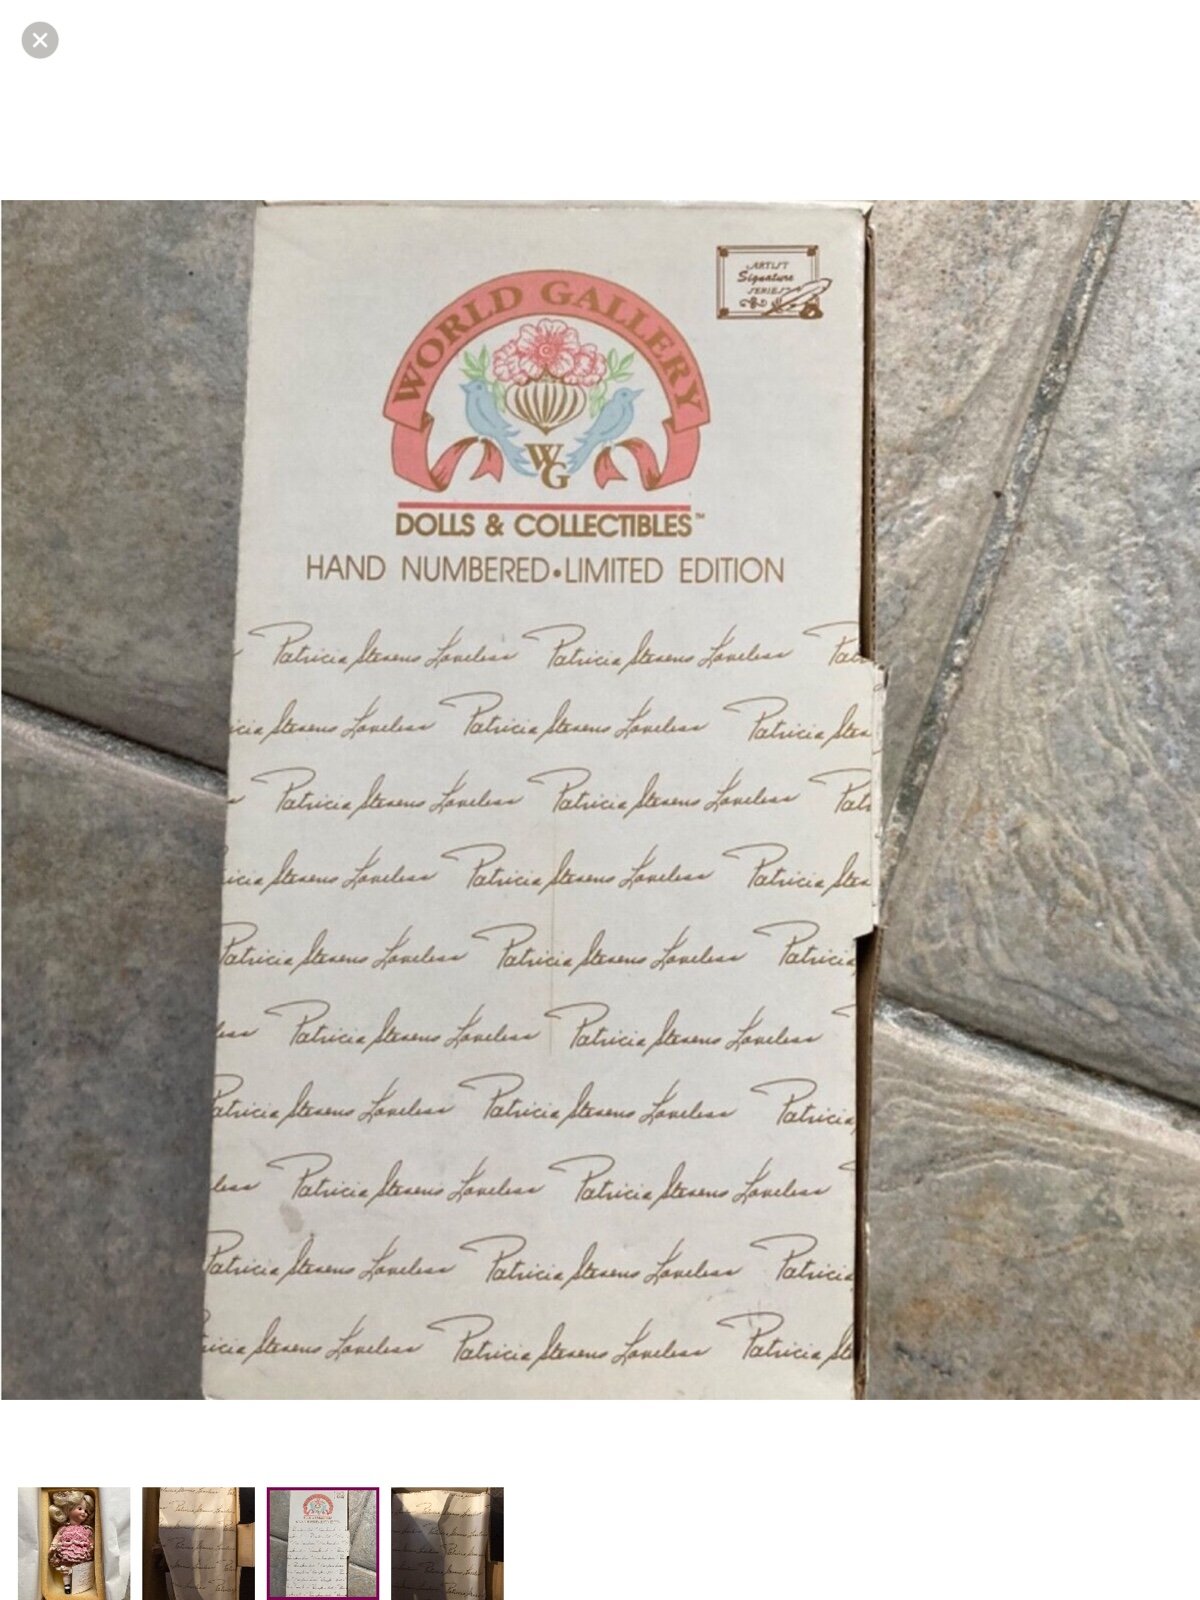 ARTIST
Signature
SERIES
WORLD GALLERY
WG
DOLLS & COLLECTIBLES™
HAND NUMBERED • LIMITED EDITION
Patricia Stevens Loveless Patricia Stevens Loveless Pat
icia Stevens Loveless Patricia Stevens Loveless Patricia Stev
Patricia Stevens Loveless Patricia Stevens Loveless Patr
icia Stevens Loveless Patricia Stevens Loveless Patricia Stev
Patricia Stevens Loveless Patricia Stevens Loveless Patricia
less Patricia Stevens Loveless Patricia Stevens Loveless
Patricia Stevens Loveless Patricia Stevens Loveless Patricia
less Patricia Stevens Loveless Patricia Stevens Loveless
Patricia Stevens Loveless Patricia Stevens Loveless Patricia
ricia Stevens Loveless Patricia Stevens Loveless Patricia St